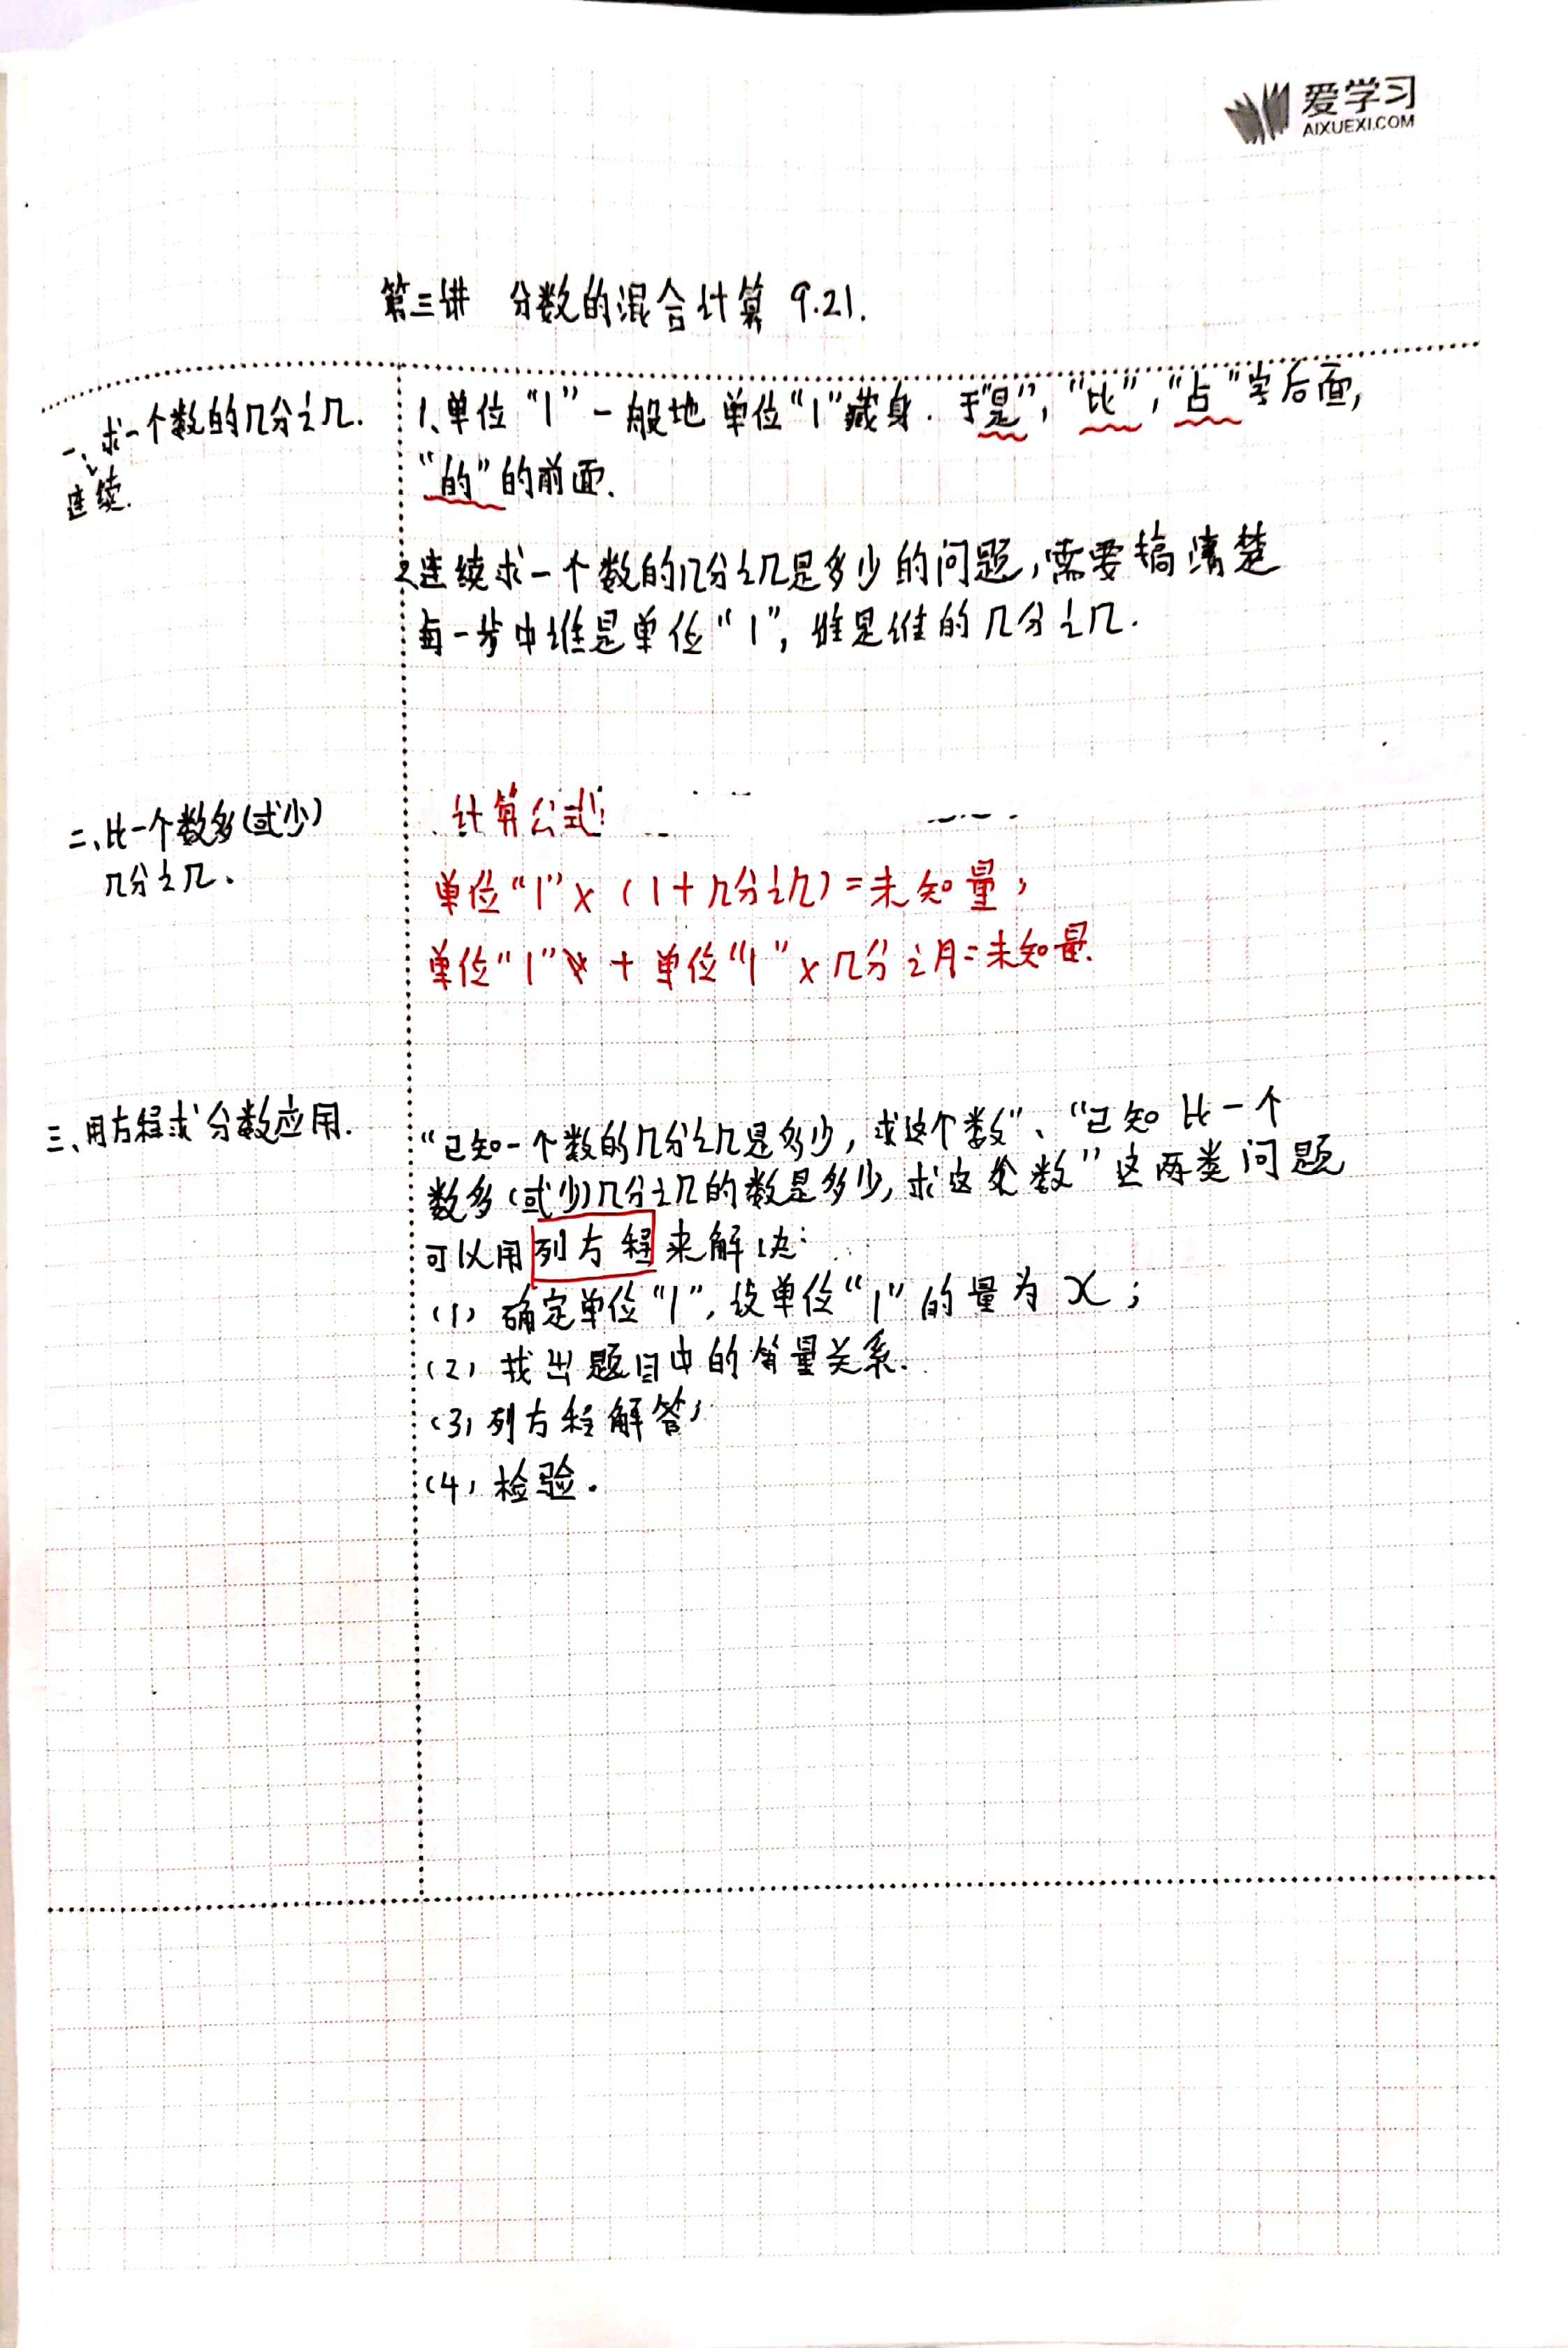 爱学习
AIXUEXI.COM
第三讲 分数的混合计算 9.21.
一、求一个数的几分之几.
连续.
1、单位“1”一般地单位“1”藏身.于“是”,“比”,“占”字后面,
“的”的前面.
2.连续求一个数的几分之几是多少的问题,需要搞清楚
每一步中谁是单位“1”,谁是谁的几分之几.
二、比一个数多(或少)
几分之几.
计算公式:
单位“1”×(1+几分之几)=未知量,
单位“1” + 单位“1”×几分之几=未知量.
三、用方程求分数应用.
“已知一个数的几分之几是多少,求这个数”、“已知比一个
数多(或少)几分之几的数是多少,求这个数”这两类问题
可以用列方程来解决:
(1)确定单位“1”,设单位“1”的量为x;
(2)找出题目中的等量关系.
(3)列方程解答,
(4)检验.